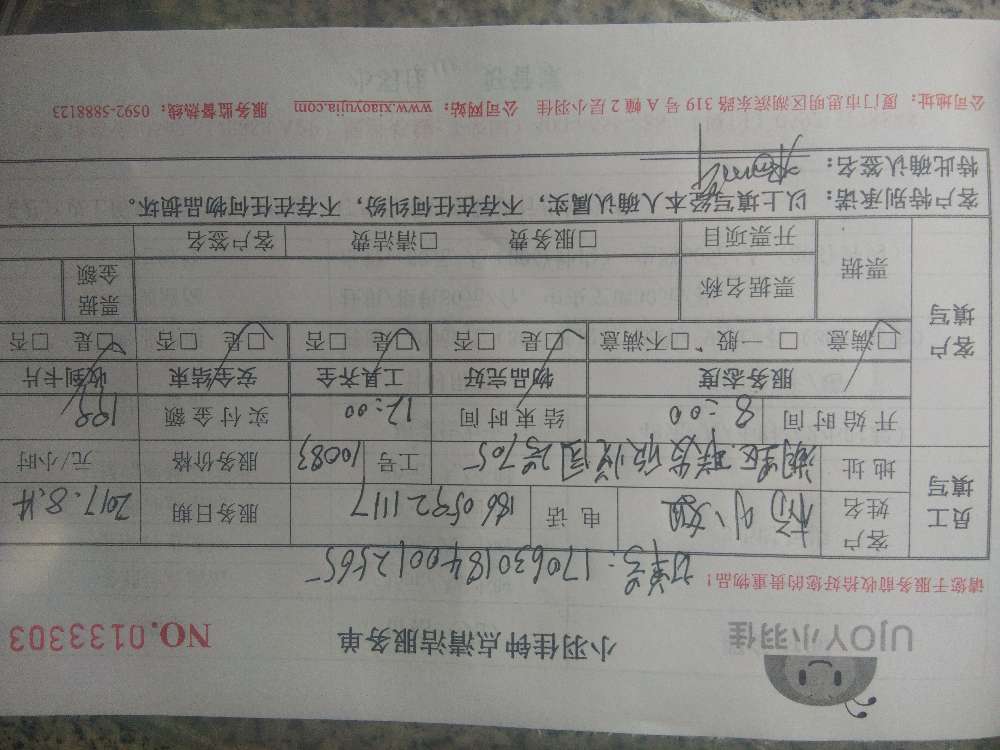 UJOY小羽佳
小羽佳钟点清洁服务单
NO.0133303
请您于服务前收拾好您的贵重物品！
订单号：1706301840012565
员工填写
客户姓名 杨小姐 电话 18605921117 服务日期 2017.8.14
地址 湖里区联发欣悦园 705 工号 10083 服务价格 元/小时
开始时间 8:00 结束时间 12:00 实付金额 199
客户填写
服务态度 物品完好 工具齐全 安全结束 收到卡片
☑满意 □一般 □不满意 ☑是 □否 ☑是 □否 ☑是 □否 ☑是 □否
票据 票据名称 票据金额
开票项目 □服务费 □清洁费 客户签名
客户特别承诺：以上填写经本人确认属实，不存在任何纠纷，不存在任何物品损坏。
特此确认签名：
公司地址：厦门市思明区湖滨东路 319 号 A 幢 2 层小羽佳 公司网站：www.xiaoyujia.com 服务监督热线：0592-5888123